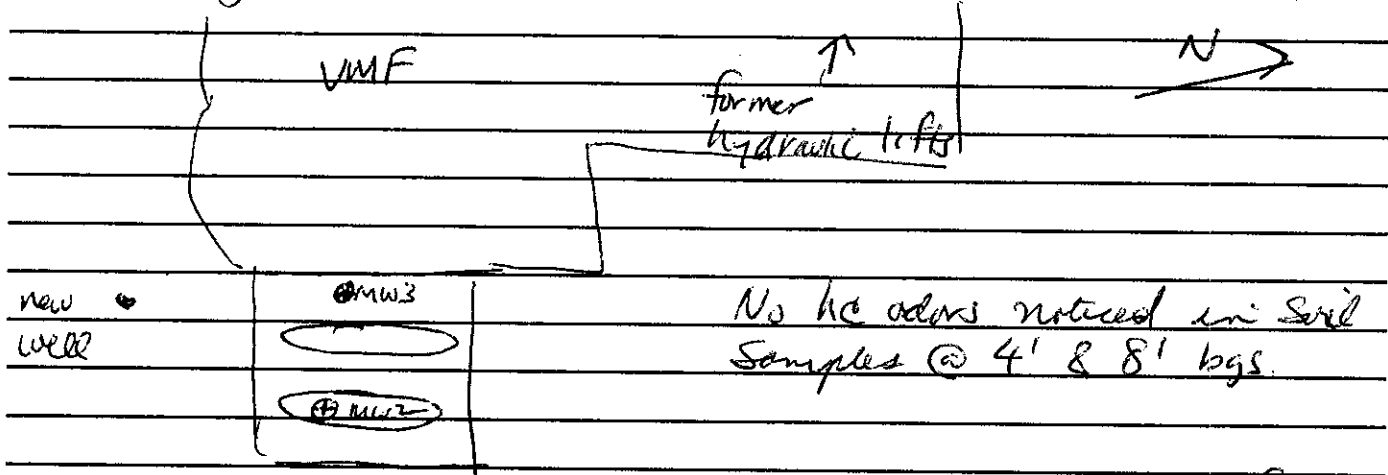 VMF
N
former
hydraulic lifts
new
well
MW3
No hc odors noticed in Soil
Samples @ 4' & 8' bgs.
MW2